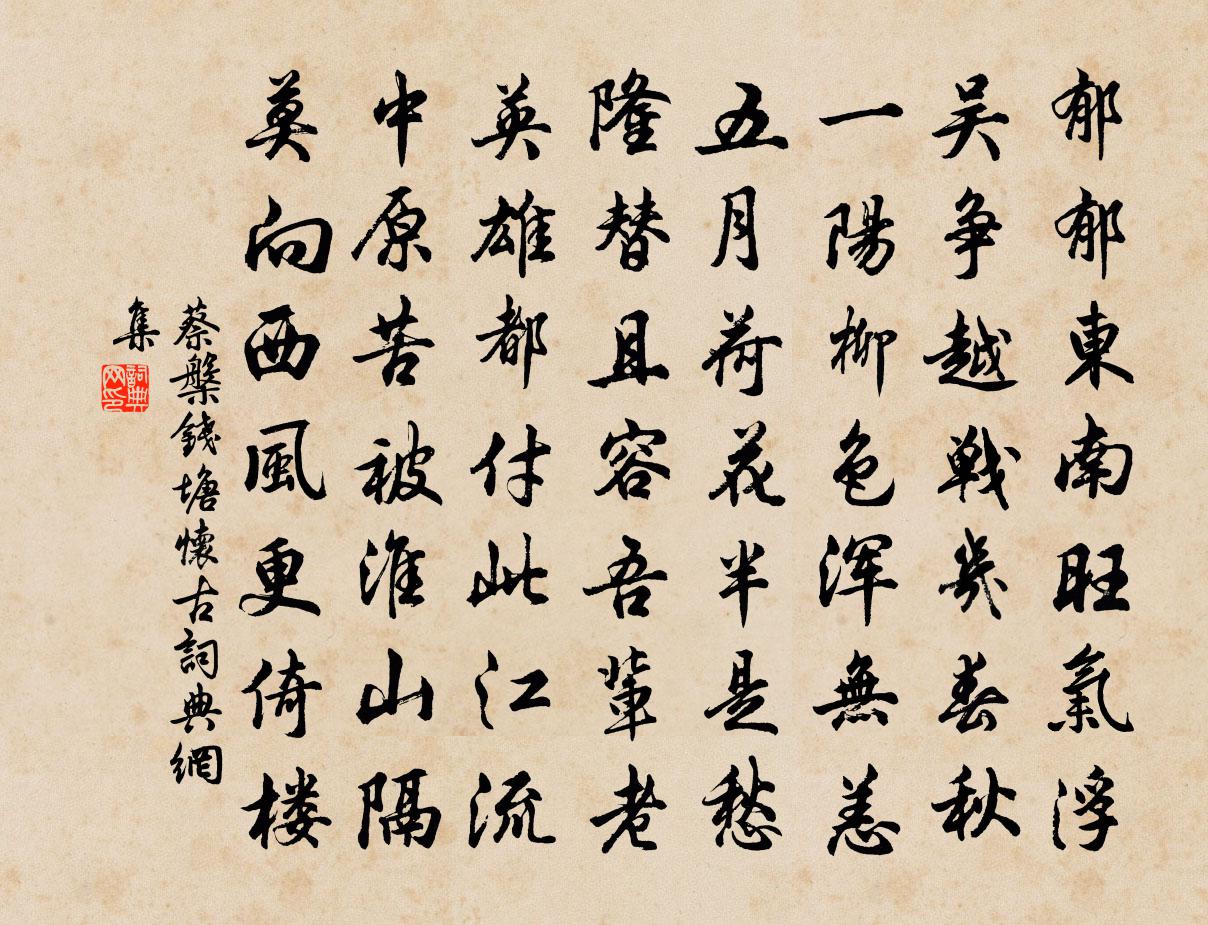 郁郁東南旺氣浮
吴争越戦幾春秋
一陽柳色浑無恙
五月荷花半是愁
隆替且容吾輩老
英雄都付此江流
中原苦被淮山隔
莫向西風更倚楼
蔡槃錢塘懷古詞典網
集
詞典
网印